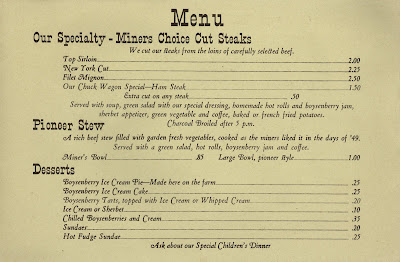 Menu
Our Specialty - Miners Choice Cut Steaks
We cut our steaks from the loins of carefully selected beef.
Top Sirloin 2.00
New York Cut 2.25
Filet Mignon 2.50
Our Chuck Wagon Special—Ham Steak 1.50
Extra cut on any steak .50
Served with soup, green salad with our special dressing, homemade hot rolls and boysenberry jam,
sherbet appetizer, green vegetable and coffee, baked or french fried potatoes.
Charcoal Broiled after 5 p.m.
Pioneer Stew
A rich beef stew filled with garden fresh vegetables, cooked as the miners liked it in the days of '49.
Served with a green salad, hot rolls, boysenberry jam and coffee.
Miner's Bowl .85 Large Bowl, pioneer style 1.00
Desserts
Boysenberry Ice Cream Pie—Made here on the farm .25
Boysenberry Ice Cream Cake .25
Boysenberry Tarts, topped with Ice Cream or Whipped Cream .20
Ice Cream or Sherbet .10
Chilled Boysenberries and Cream .35
Sundaes .20
Hot Fudge Sundae .25
Ask about our Special Children's Dinner